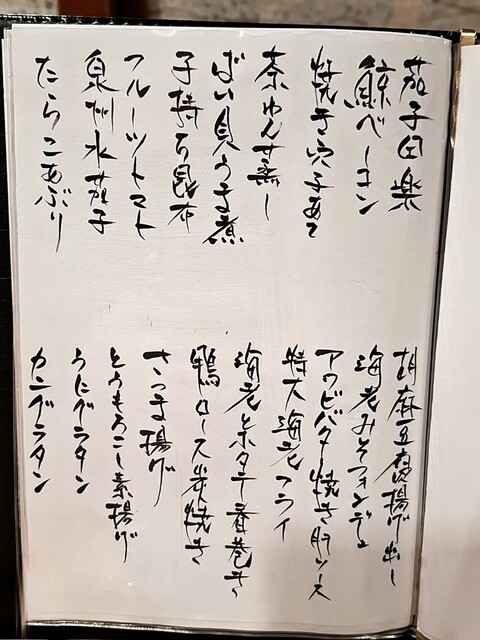 茄子田楽
鯨ベーコン
焼き穴子あて
茶わん蒸し
ばい貝うま煮
子持ち昆布
フルーツトマト
泉州水茄子
たらこあぶり
胡麻豆腐揚げ出し
海老みそフォンデュ
アワビバター焼き肝ソース
特大海老フライ
海老とホタテ春巻き
鴨ロース炭焼き
さつま揚げ
とうもろこし素揚げ
うにグラタン
カニグラタン